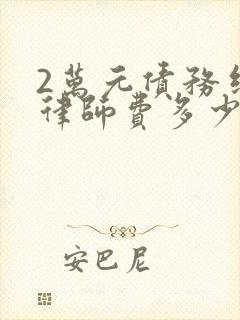 2萬元債務
律師費多少
安巴尼